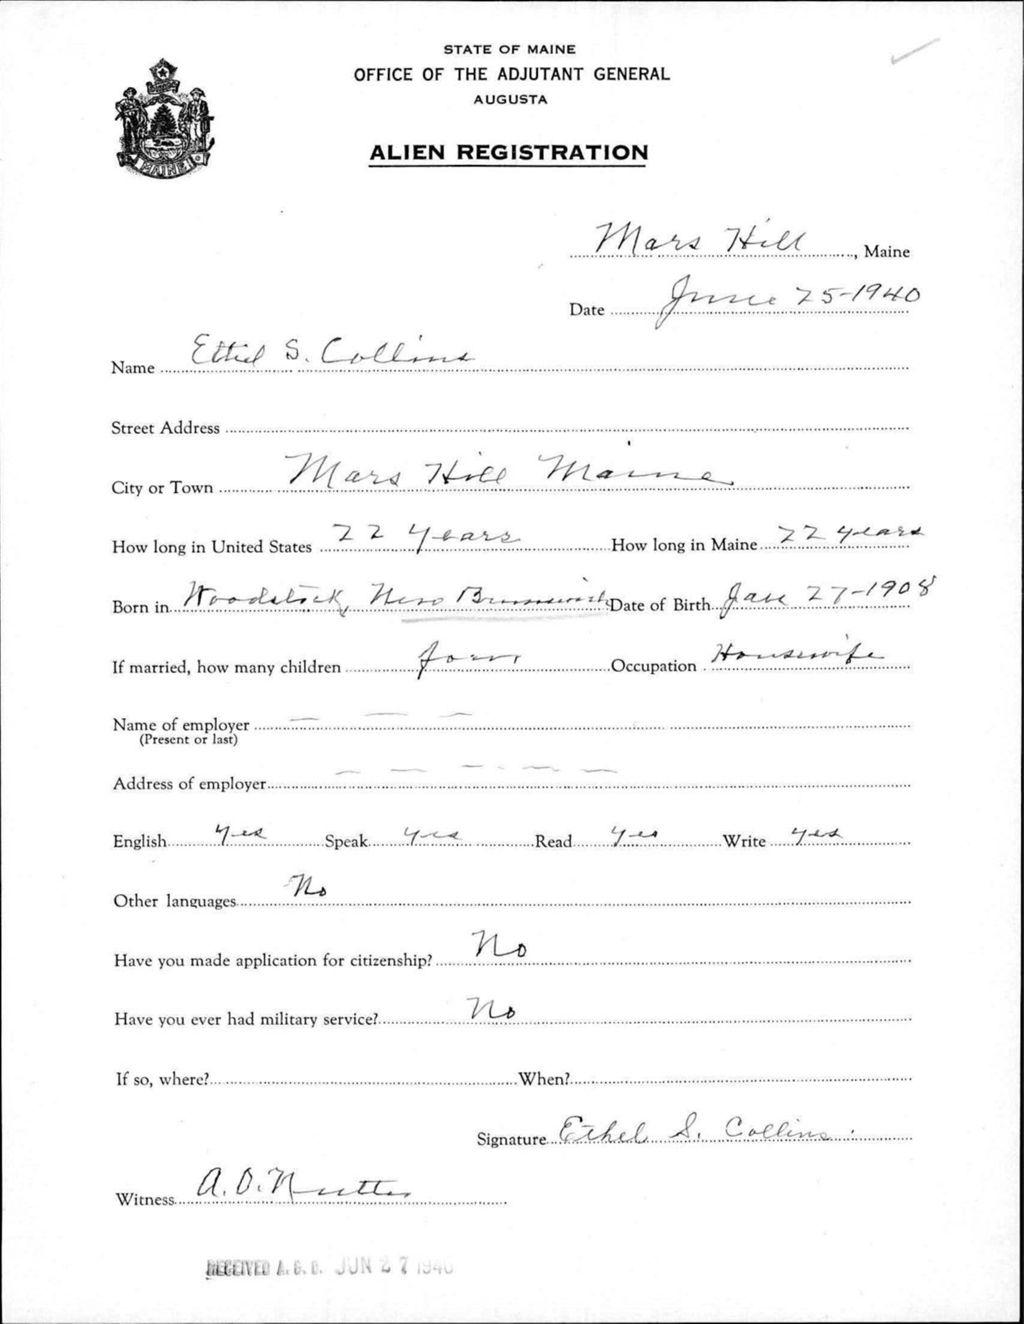 STATE OF MAINE
OFFICE OF THE ADJUTANT GENERAL
AUGUSTA
ALIEN REGISTRATION
MAINE
Mars Hill, Maine
Date June 25-1940
Name Ethel S. Collins
Street Address
City or Town Mars Hill Maine
How long in United States 22 Years How long in Maine 22 years
Born in Woodstock, New Brunswick Date of Birth Jan 27-1908
If married, how many children four Occupation Housewife
Name of employer
(Present or last)
Address of employer
English yes Speak yes Read yes Write yes
Other languages No
Have you made application for citizenship? No
Have you ever had military service? No
If so, where? When?
Signature Ethel S. Collins
Witness A. O. Nutter
RECEIVED A. G. O. JUN 27 1940